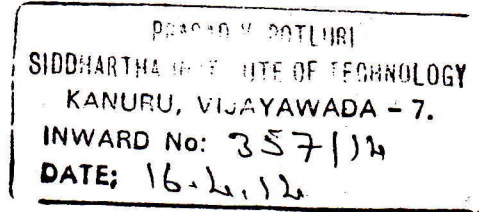 PRASAD V. POTLURI
SIDDHARTHA INSTITUTE OF TECHNOLOGY
KANURU, VIJAYAWADA - 7.
INWARD No: 357/14
DATE: 16.4.14